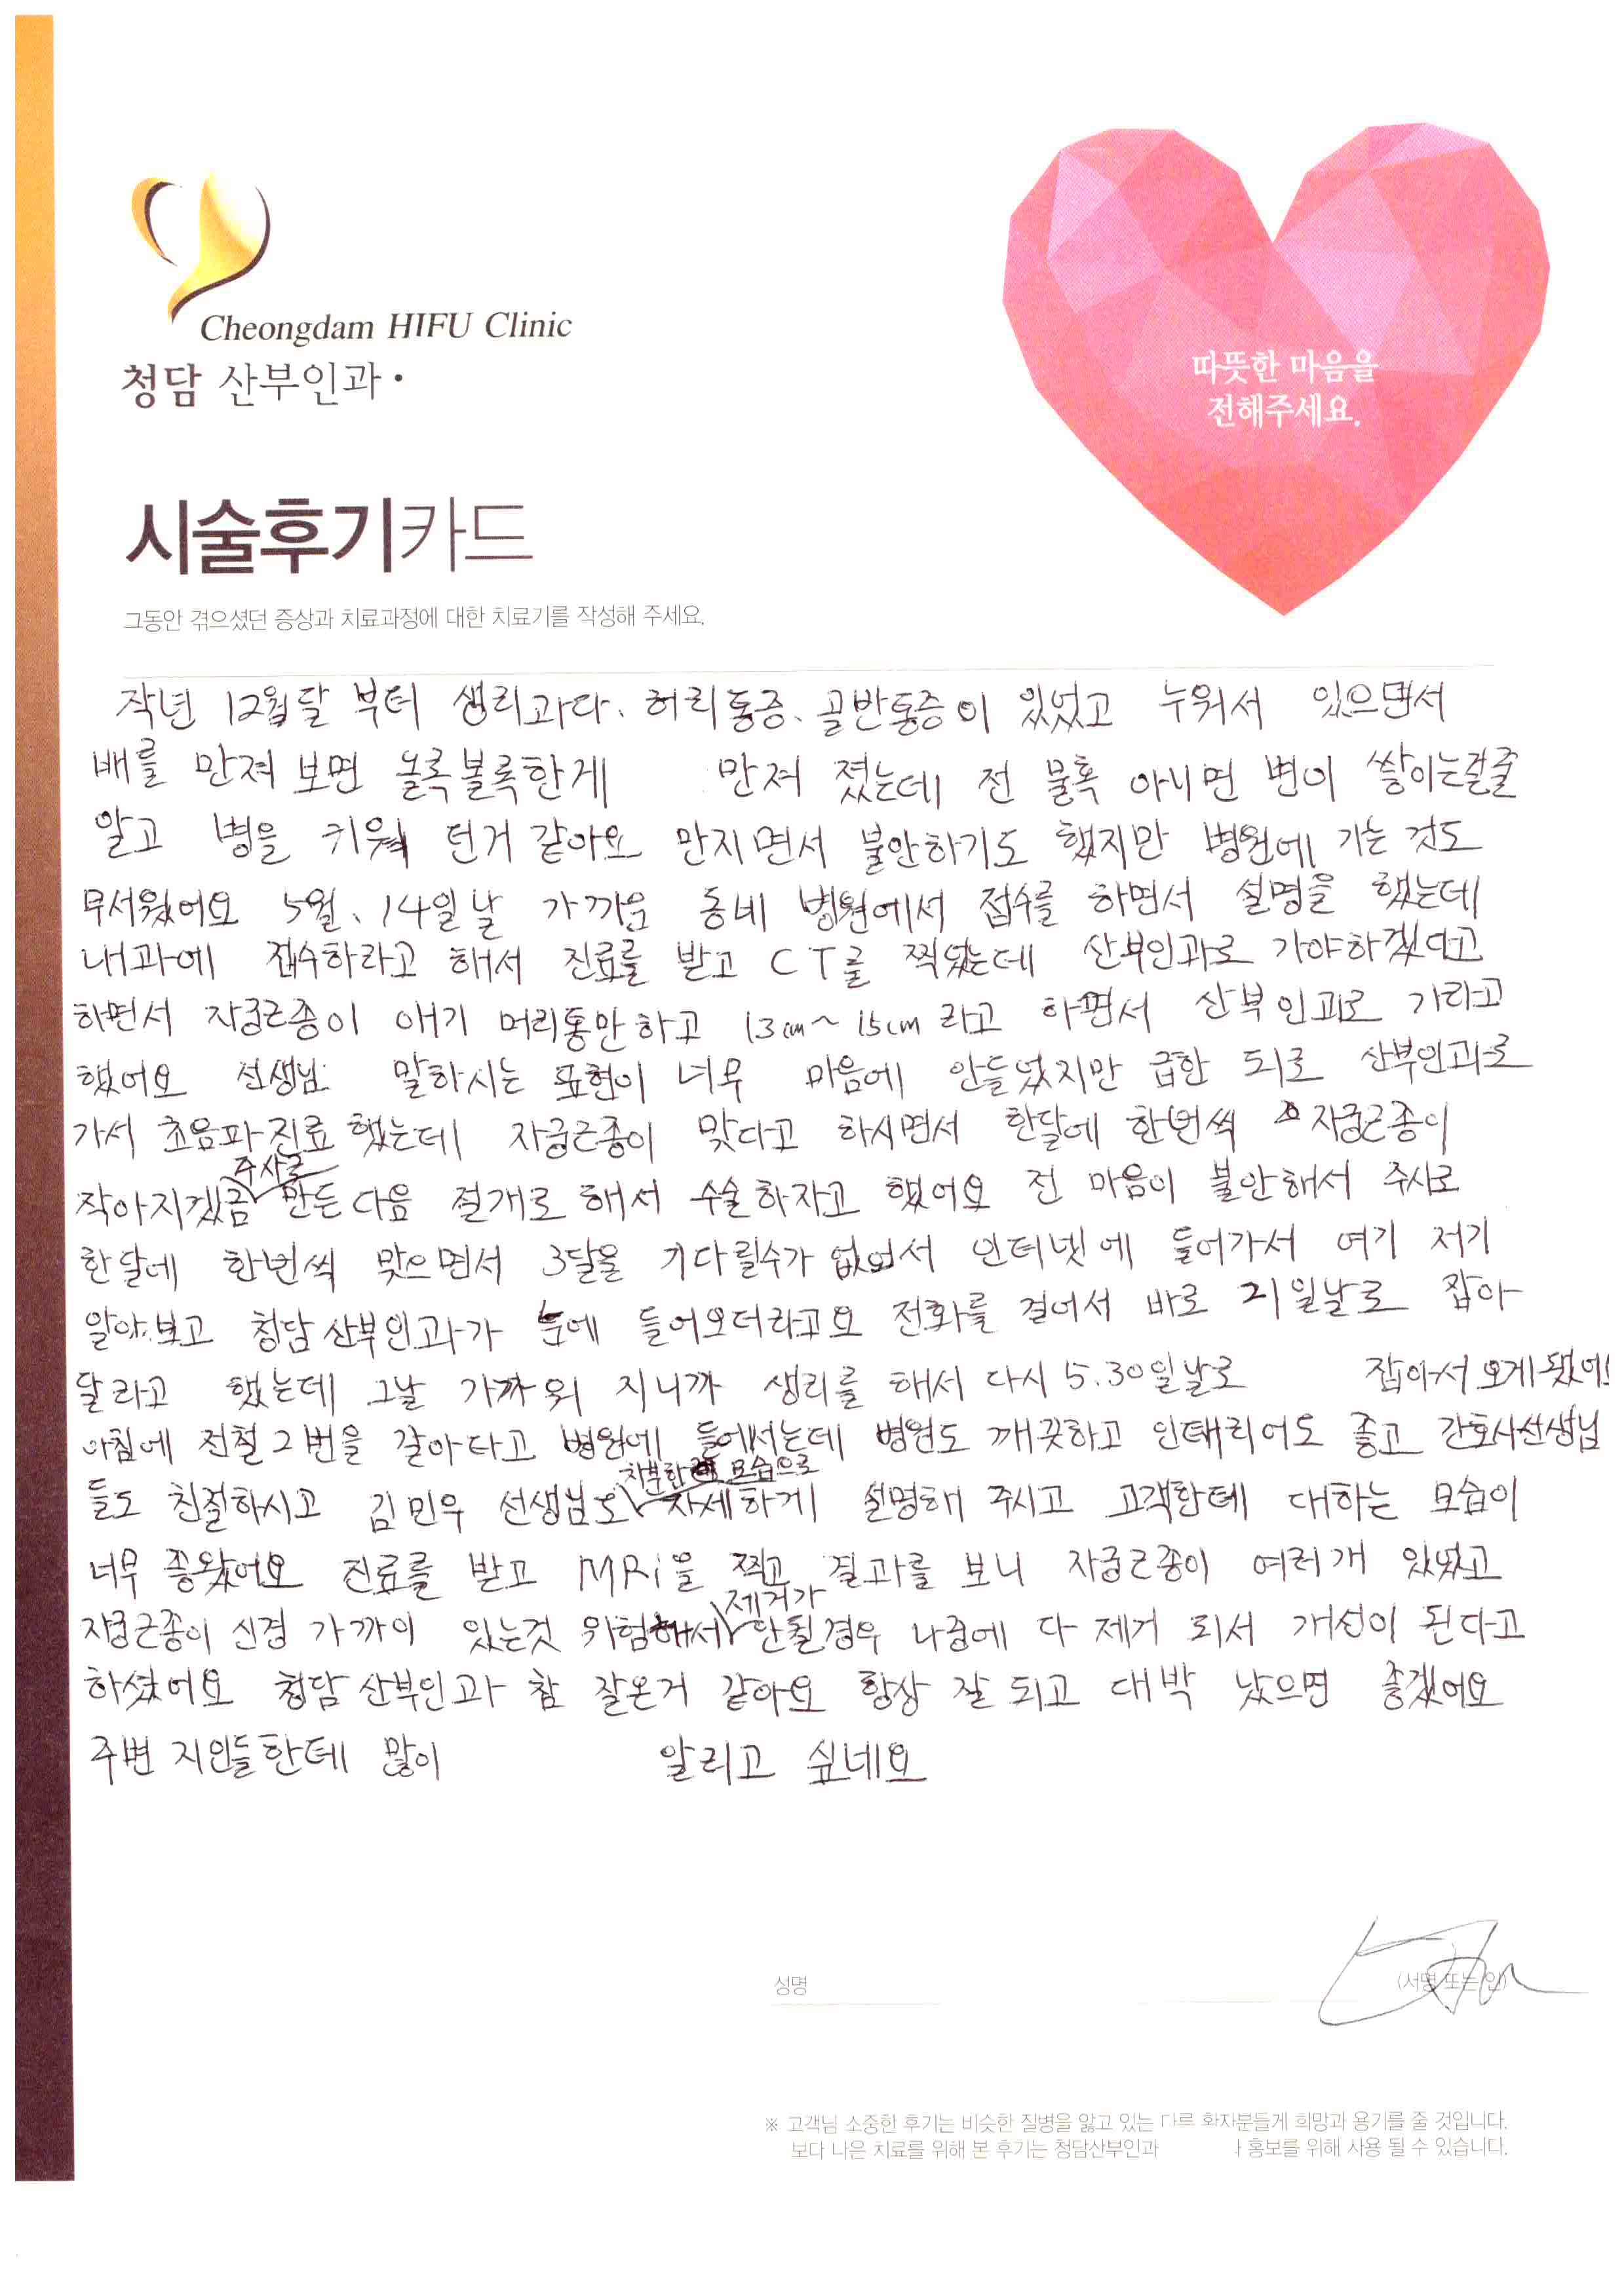 Cheongdam HIFU Clinic
청담 산부인과
따뜻한 마음을
전해주세요.
시술후기카드
그동안 겪으셨던 증상과 치료과정에 대한 치료기를 작성해 주세요.
작년 12월달 부터 생리과다、허리통증、골반통증이 있었고 누워서 있으면서
배를 만져 보면 올록볼록한게 만져 졌는데 전 물혹 아니면 변이 쌓이는걸줄
알고 병을 키워 던거 같아요 만지면서 불안하기도 했지만 병원에 가는 것도
무서웠어요 5월、14일날 가까음 동네 병원에서 접수를 하면서 설명을 했는데
내과에 접수하라고 해서 진료를 받고 CT를 찍었는데 산부인과로 가야하겠다고
하면서 자궁근종이 애기 머리통만하고 13cm~15cm 라고 하면서 산부인과로 가라고
했어요 선생님 말하시는 표현이 너무 마음에 안들었지만 급한 되로 산부인과로
가서 초음파진료 했는데 자궁근종이 맞다고 하시면서 한달에 한번씩 자궁근종이
주사로
작아지겠끔 만든다음 절개로 해서 수술하자고 했어요 전 마음이 불안해서 주사로
한달에 한번씩 맞으면서 3달을 기다릴수가 없어서 인터넷에 들어가서 여기 저기
알아보고 청담산부인과가 눈에 들어오더라고요 전화를 걸어서 바로 21일날로 잡아
달라고 했는데 그날 가까워 지니까 생리를 해서 다시 5.30일날로 잡아서 오게됐어요
아침에 전철 2번을 갈아타고 병원에 들어서는데 병원도 깨끗하고 인태리어도 좋고 간호사선생님
차분한 모습으로
들도 친절하시고 김민우 선생님도 자세하게 설명해 주시고 고객한테 대하는 모습이
너무 좋왔어요 진료를 받고 MRi을 찍고 결과를 보니 자궁근종이 여러개 있었고
제거가
자궁근종이 신경 가까이 있는것 위험해서 안될경우 나중에 다 제거 되서 개선이 된다고
하셨어요 청담산부인과 참 잘온거 같아요 항상 잘 되고 대박 났으면 좋겠어요
주변 지인들한테 많이 알리고 싶네요
성명 (서명 또는 인)
※ 고객님 소중한 후기는 비슷한 질병을 앓고 있는 다른 환자분들게 희망과 용기를 줄 것입니다.
보다 나은 치료를 위해 본 후기는 청담산부인과 홍보를 위해 사용 될 수 있습니다.